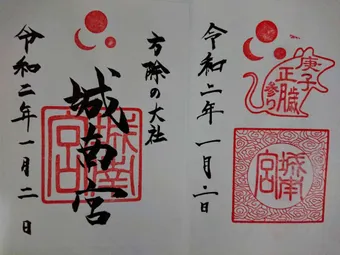 庚子
令和二年一月二日
城南宮
方除の大社
城南宮
城南宮
令和二年一月二日